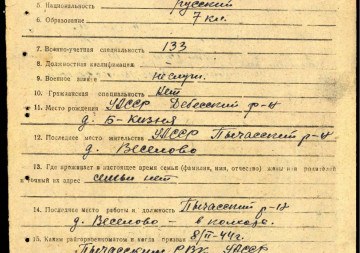 5. Национальность русский
6. Образование 7 кл.
7. Военно-учетная специальность 133
8. Должностная квалификация
9. Военное звание неслуж.
10. Гражданская специальность Нет
11. Место рождения УАССР Дебесский р-н
д. Б-Кизня
12. Последнее место жительства УАССР Пычасский р-н
д. Веселово
13. Где проживает в настоящее время семья (фамилия, имя, отчество) жены или родителей
и точный их адрес семьи нет
14. Последнее место работы и должность Пычасский р-н
д. Веселово — в колхозе.
15. Каким райгорвоенкоматом и когда призван 8/II-44г.
Пычасским РВК УАССР